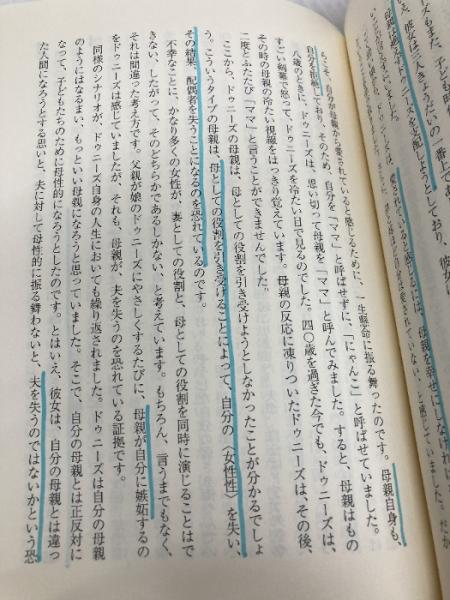 ーズもまた、子ども時
が、彼女は「三きょうだいの一番上であ
を支配しようとしており、彼女
母親を幸せにしなければ
と感じていました。だか
らこそ、自分が母親から愛されていると感じるために、一生懸命に振る舞ったのです。母親自身も、
自分を拒絶しており、そのため、自分を「ママ」と呼ばせずに、「にゃんこ」と呼ばせていました。
八歳のときに、ドゥニーズは、思い切って母親を「ママ」と呼んでみました。すると、母親はもの
すごい剣幕で怒って、ドゥニーズを冷たい目で見るのでした。四〇歳を過ぎた今でも、ドゥニーズは、
その時の母親の冷たい視線をはっきり覚えています。母親の反応に凍りついたドゥニーズは、その後、
二度とふたたび「ママ」と言うことができませんでした。
ここから、ドゥニーズの母親は、母としての役割を引き受けようとしなかったことが分かるでしょ
う。こういうタイプの母親は、母としての役割を引き受けることによって、自分の〈女性性〉を失い、
その結果、配偶者を失うことになるのを恐れているのです。
不幸なことに、かなり多くの女性が、妻としての役割と、母としての役割を同時に演じることはで
きない、したがって、そのどちらかであるしかない、と考えています。もちろん、言うまでもなく、
それは間違った考え方です。父親が娘のドゥニーズにやさしくするたびに、母親が自分に嫉妬するの
をドゥニーズは感じていましたが、それも、母親が、夫を失うのを恐れている証拠です。
同様のシナリオが、ドゥニーズ自身の人生においても繰り返されました。ドゥニーズは自分の母親
のようにはなるまい、もっといい母親になろうと思っていました。そこで、自分の母親とは正反対に
なって、子どもたちのために母性的になろうとしたのです。とはいえ、彼女は、自分の母親とは違っ
た人間になろうとする思いと、夫に対して母性的に振る舞わないと、夫を失うのではないかという恐